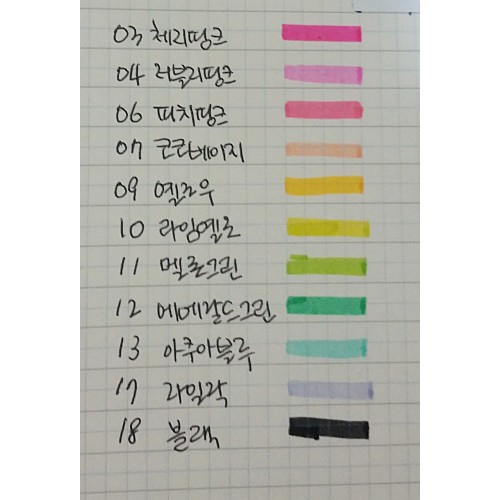 03 체리핑크
04 러블리핑크
06 피치핑크
07 코코베이지
09 옐로우
10 라임옐로
11 멜론그린
12 에메랄드그린
13 아쿠아블루
17 라일락
18 블랙